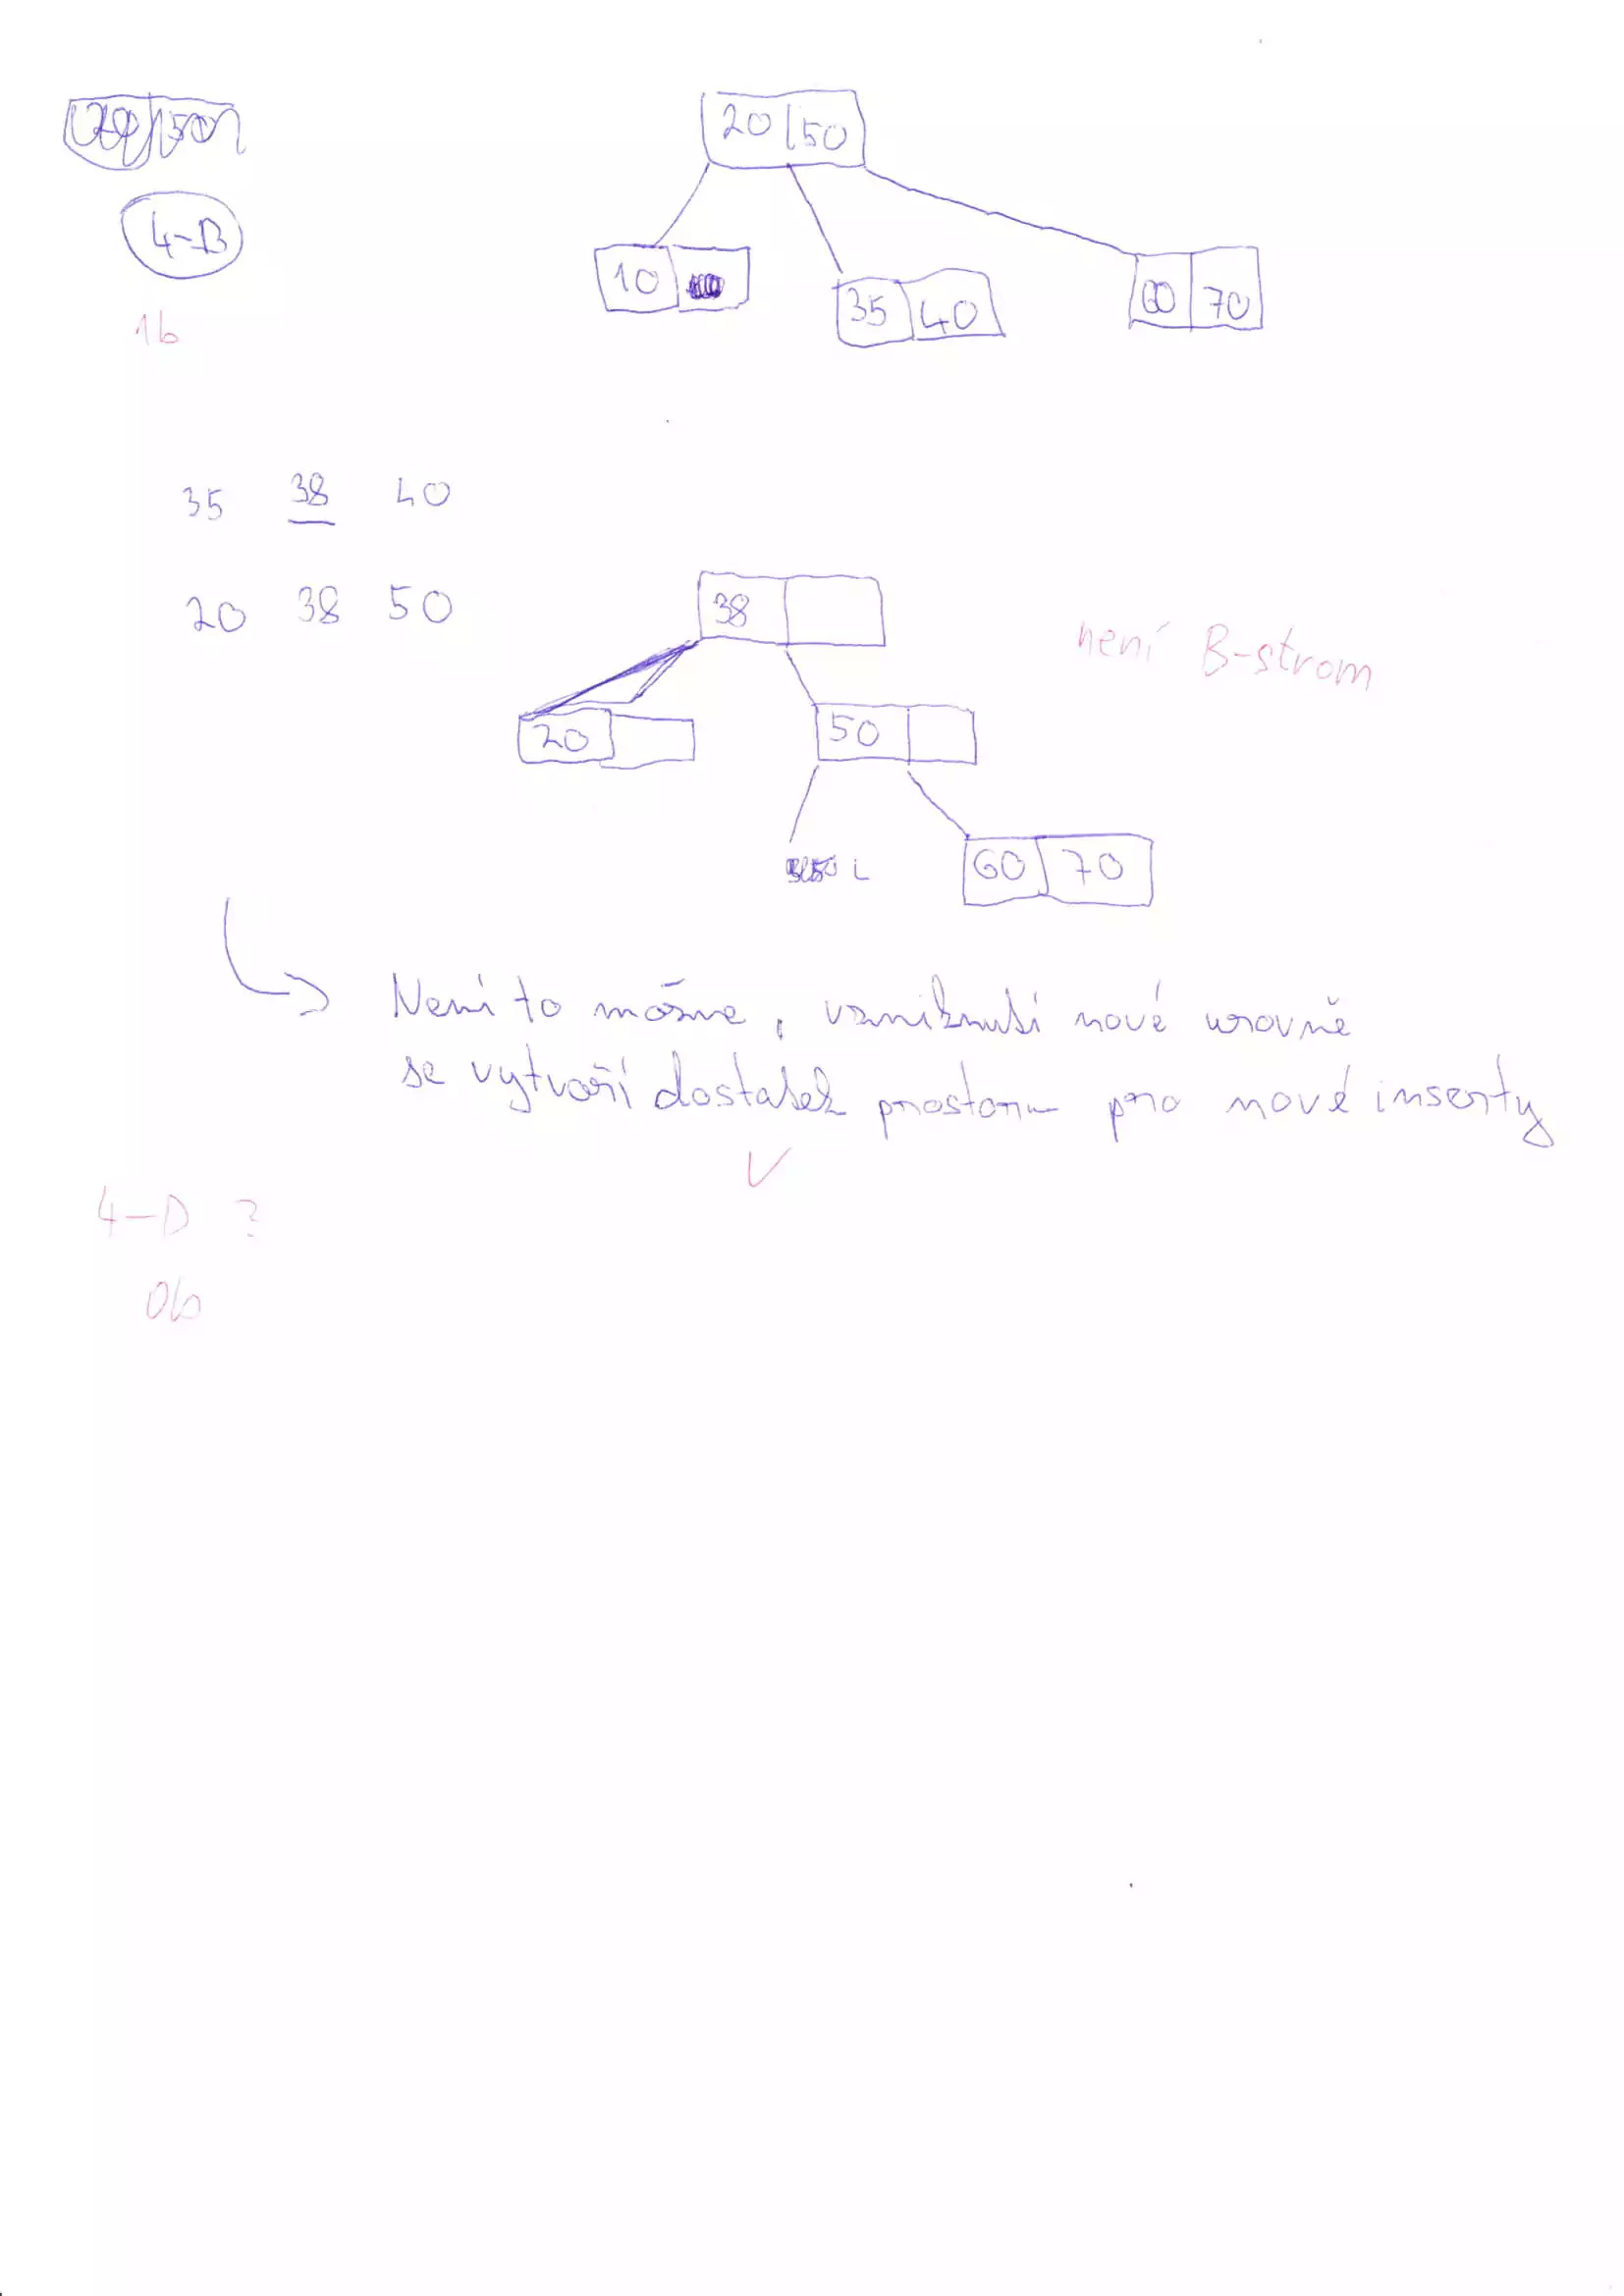 20 50
20 50
4-B
10
35 40
60 70
1b
35 38 40
20 38 50
38
není B-strom
20
50
60 70
Není to možne, vzniknutí nové urovně
se vytvoří dostatek prostoru pro nové inserty
4-D ?
0b